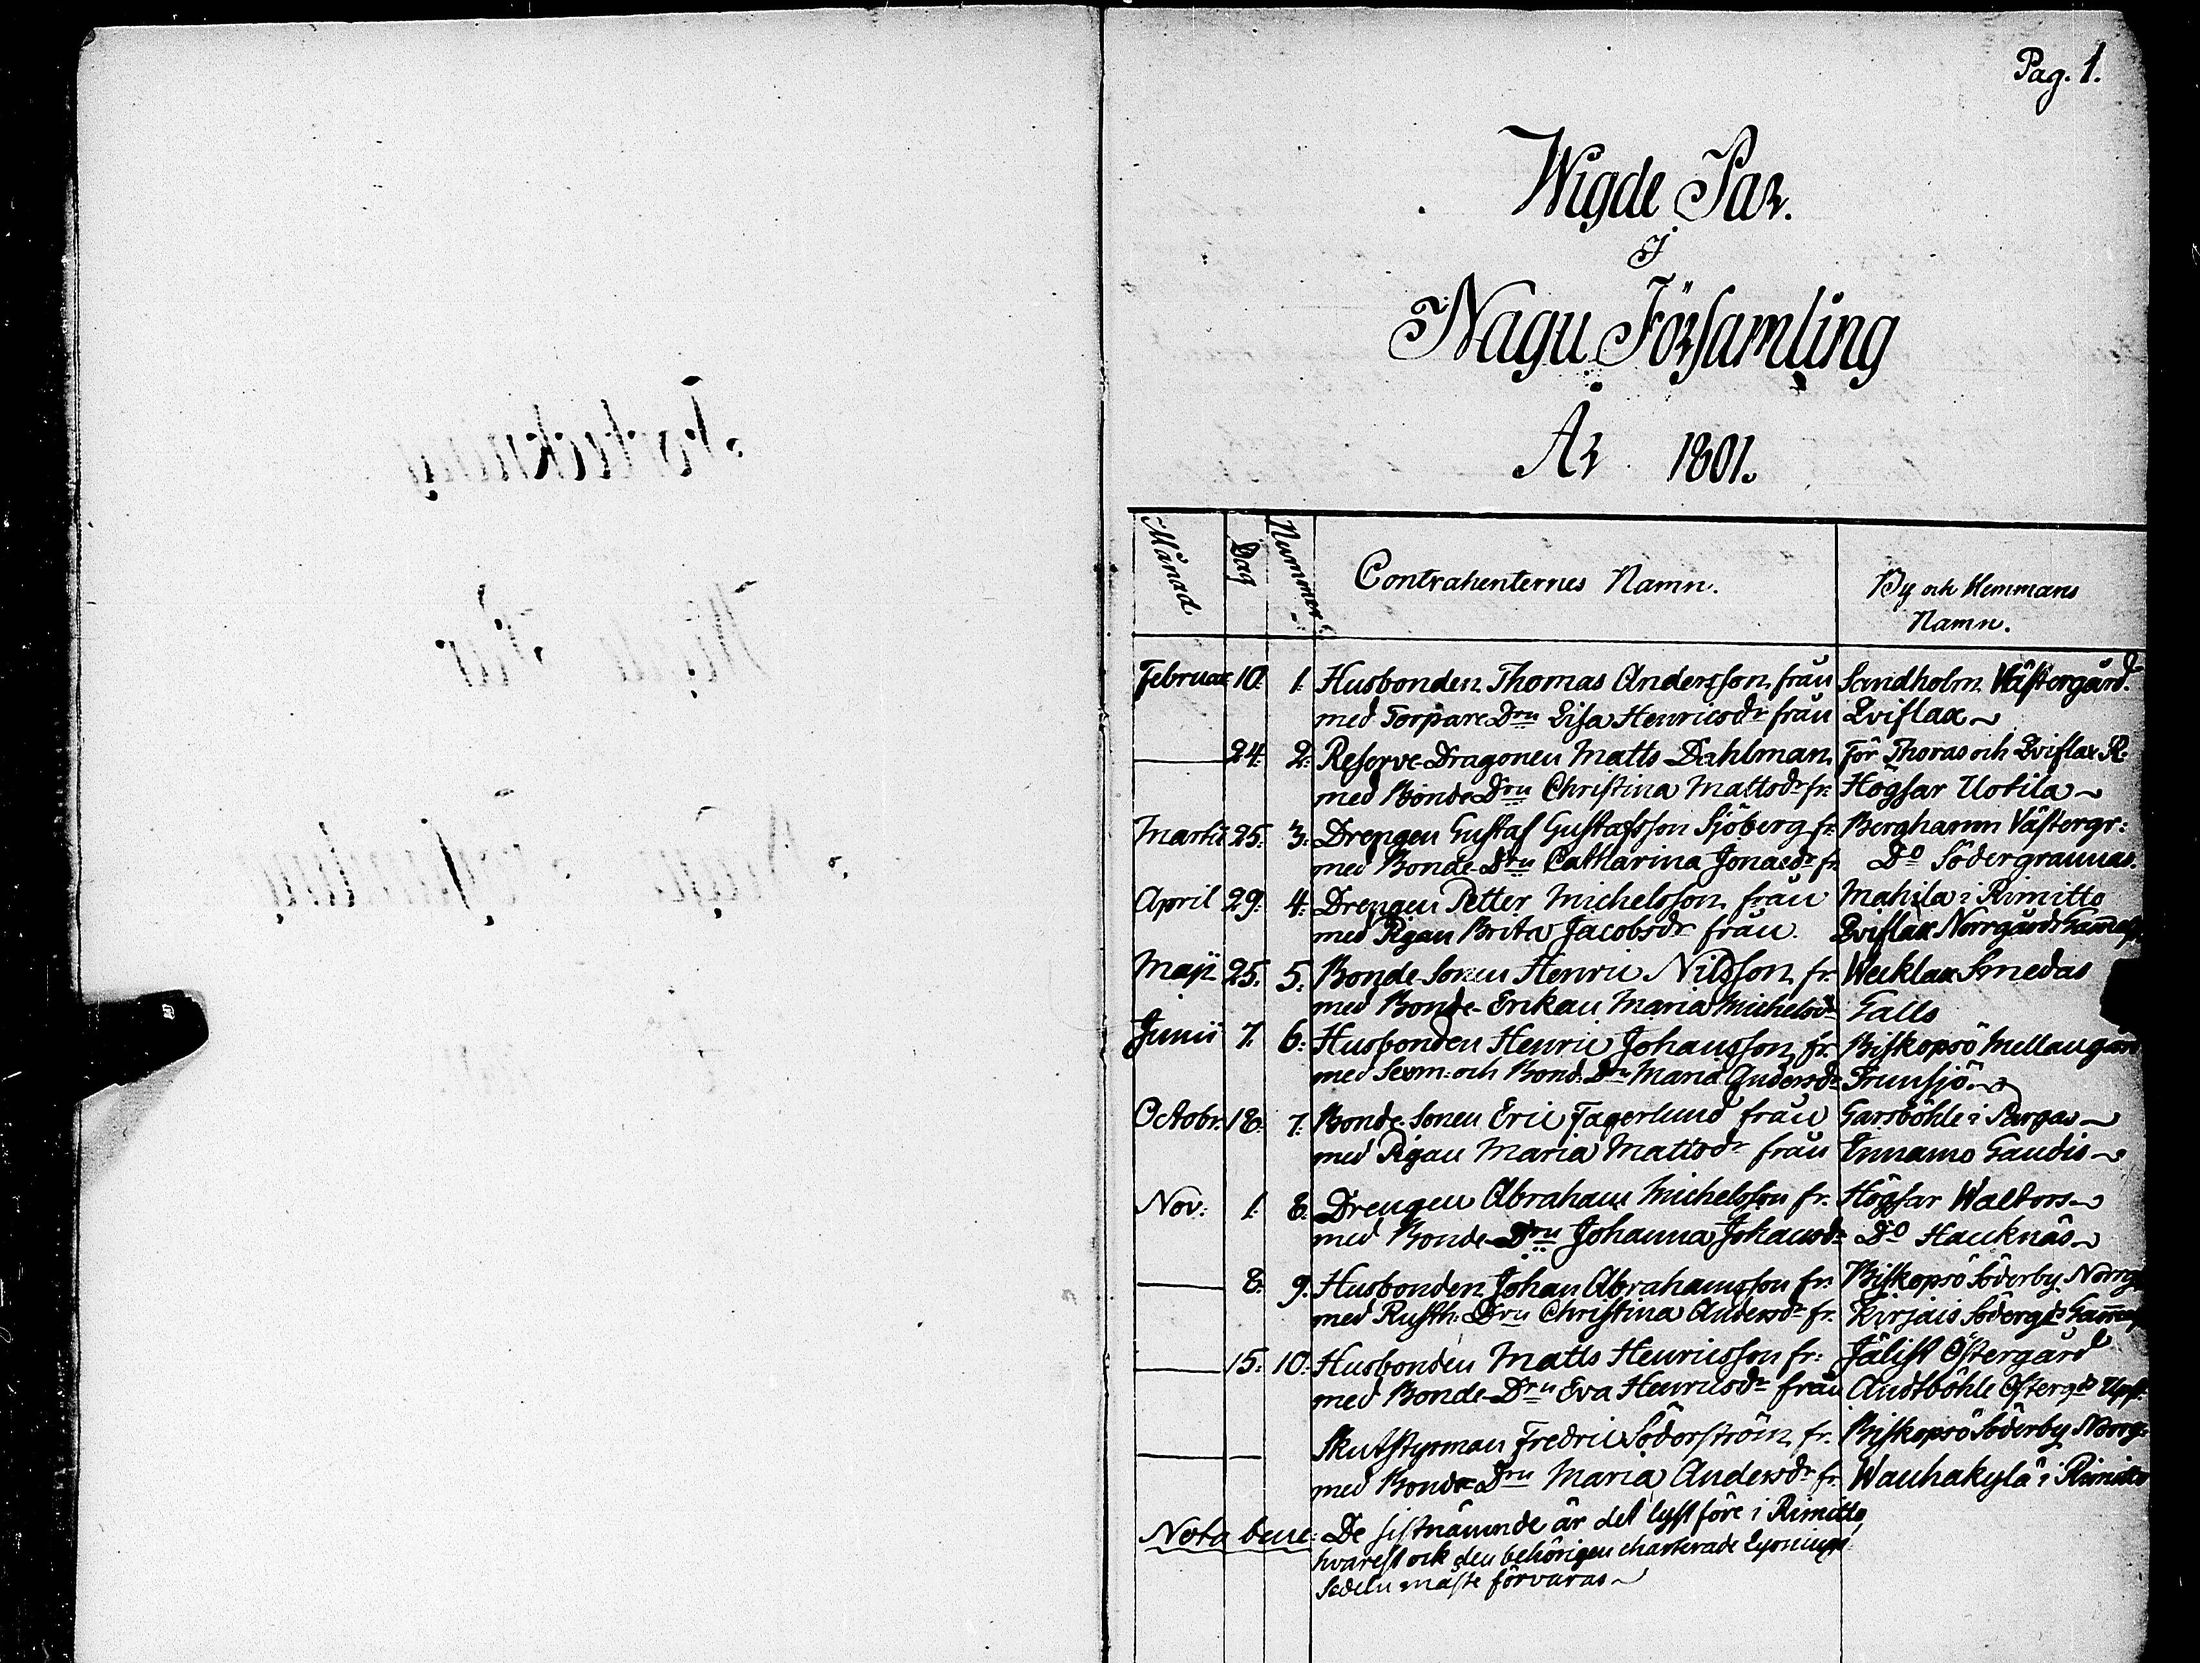 Pag. 1.
Wigde Par.
I
Nagu Församling
År 1801.
Månad Dag Nummer Contrahenternes Namn. By och Hemmans
Namn.
Februar 10. 1. Husbonden Thomas Andersson från Sandholm Västergård.
med Torpare Drn Lisa Henricsdr från Lviflax
24. 2. Reserve-Dragonen Matts Dahlman För Thoras och Lviflax R.
med Bonde Drn Christina Mattsdr fr. Högsar Uotila
Martii 25. 3. Drengen Gustaf Gustafsson Sjöberg fr. Berghamn Västergr:
med Bonde-Drn Catharina Jonasdr fr. Do Södergrannas.
April 29. 4. Drengen Petter Michelsson från Mahila i Rimitto
med Pigan Brita Jacobsdr från Lviflax Norrgårds
Maji 25. 5. Bonde-Sonen Henric Nilsson fr. Wecklax Smedas
med Bonde-Enkan Maria Michelsdr Galls
Junii 7. 6. Husbonden Henric Johansson fr. Biskopsö Mellangård
med Sexm: och Bond. Drn Maria Andersdr Trunsjö
Octobr. 18. 7. Bonde-Sonen Eric Fagerlund från Garsböhle i Pargas
med Pigan Maria Mattsdr från Innamo Gaudis
Nov: 1. 8. Drengen Abraham Michelsson fr. Högsar Waltors
med Bonde-Drn Johanna Johansdr Do Haucknäs
8. 9. Husbonden Johan Abrahamsson fr. Biskopsö Söderby Norrg
med Rusth: Drn Christina Andersdr fr. Kirjais Söderg:
15. 10. Husbonden Matts Henricsson fr: Jälist Östergård
med Bonde-Drn Eva Henricsdr från Andböhle Österg:
Skutstyrman Fredric Söderström fr. Biskopsö Söderby Norrg:
med Bonde-Drn Maria Andersdr fr. Wauhakylä i Rimitto
Nota bene: De sistnämnde är det lyst före i Rimitto,
hvarest ock den behörigen charterade Lysnings
Sedeln måste förvaras